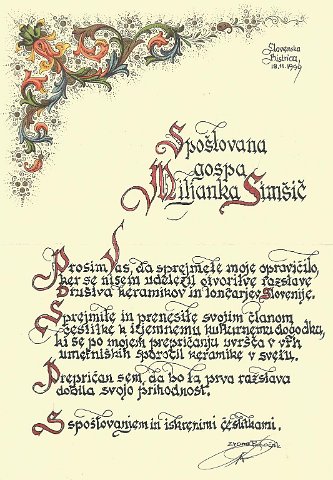 Slovenska
Bistrica,
18.11.1999
Spoštovana
gospa
Miljanka Simšič
Prosim Vas, da sprejmete moje opravičilo,
ker se nisem udeležil otvoritve razstave
Društva keramikov in lončarjev Slovenije.
Sprejmite in prenesite svojim članom
čestitke k izjemnemu kulturnemu dogodku,
ki se po mojem prepričanju uvršča v vrh
umetniških sporočil keramike v svetu.
Prepričan sem, da bo ta prva razstava
dobila svojo prihodnost.
S spoštovanjem in iskrenimi čestitkami.